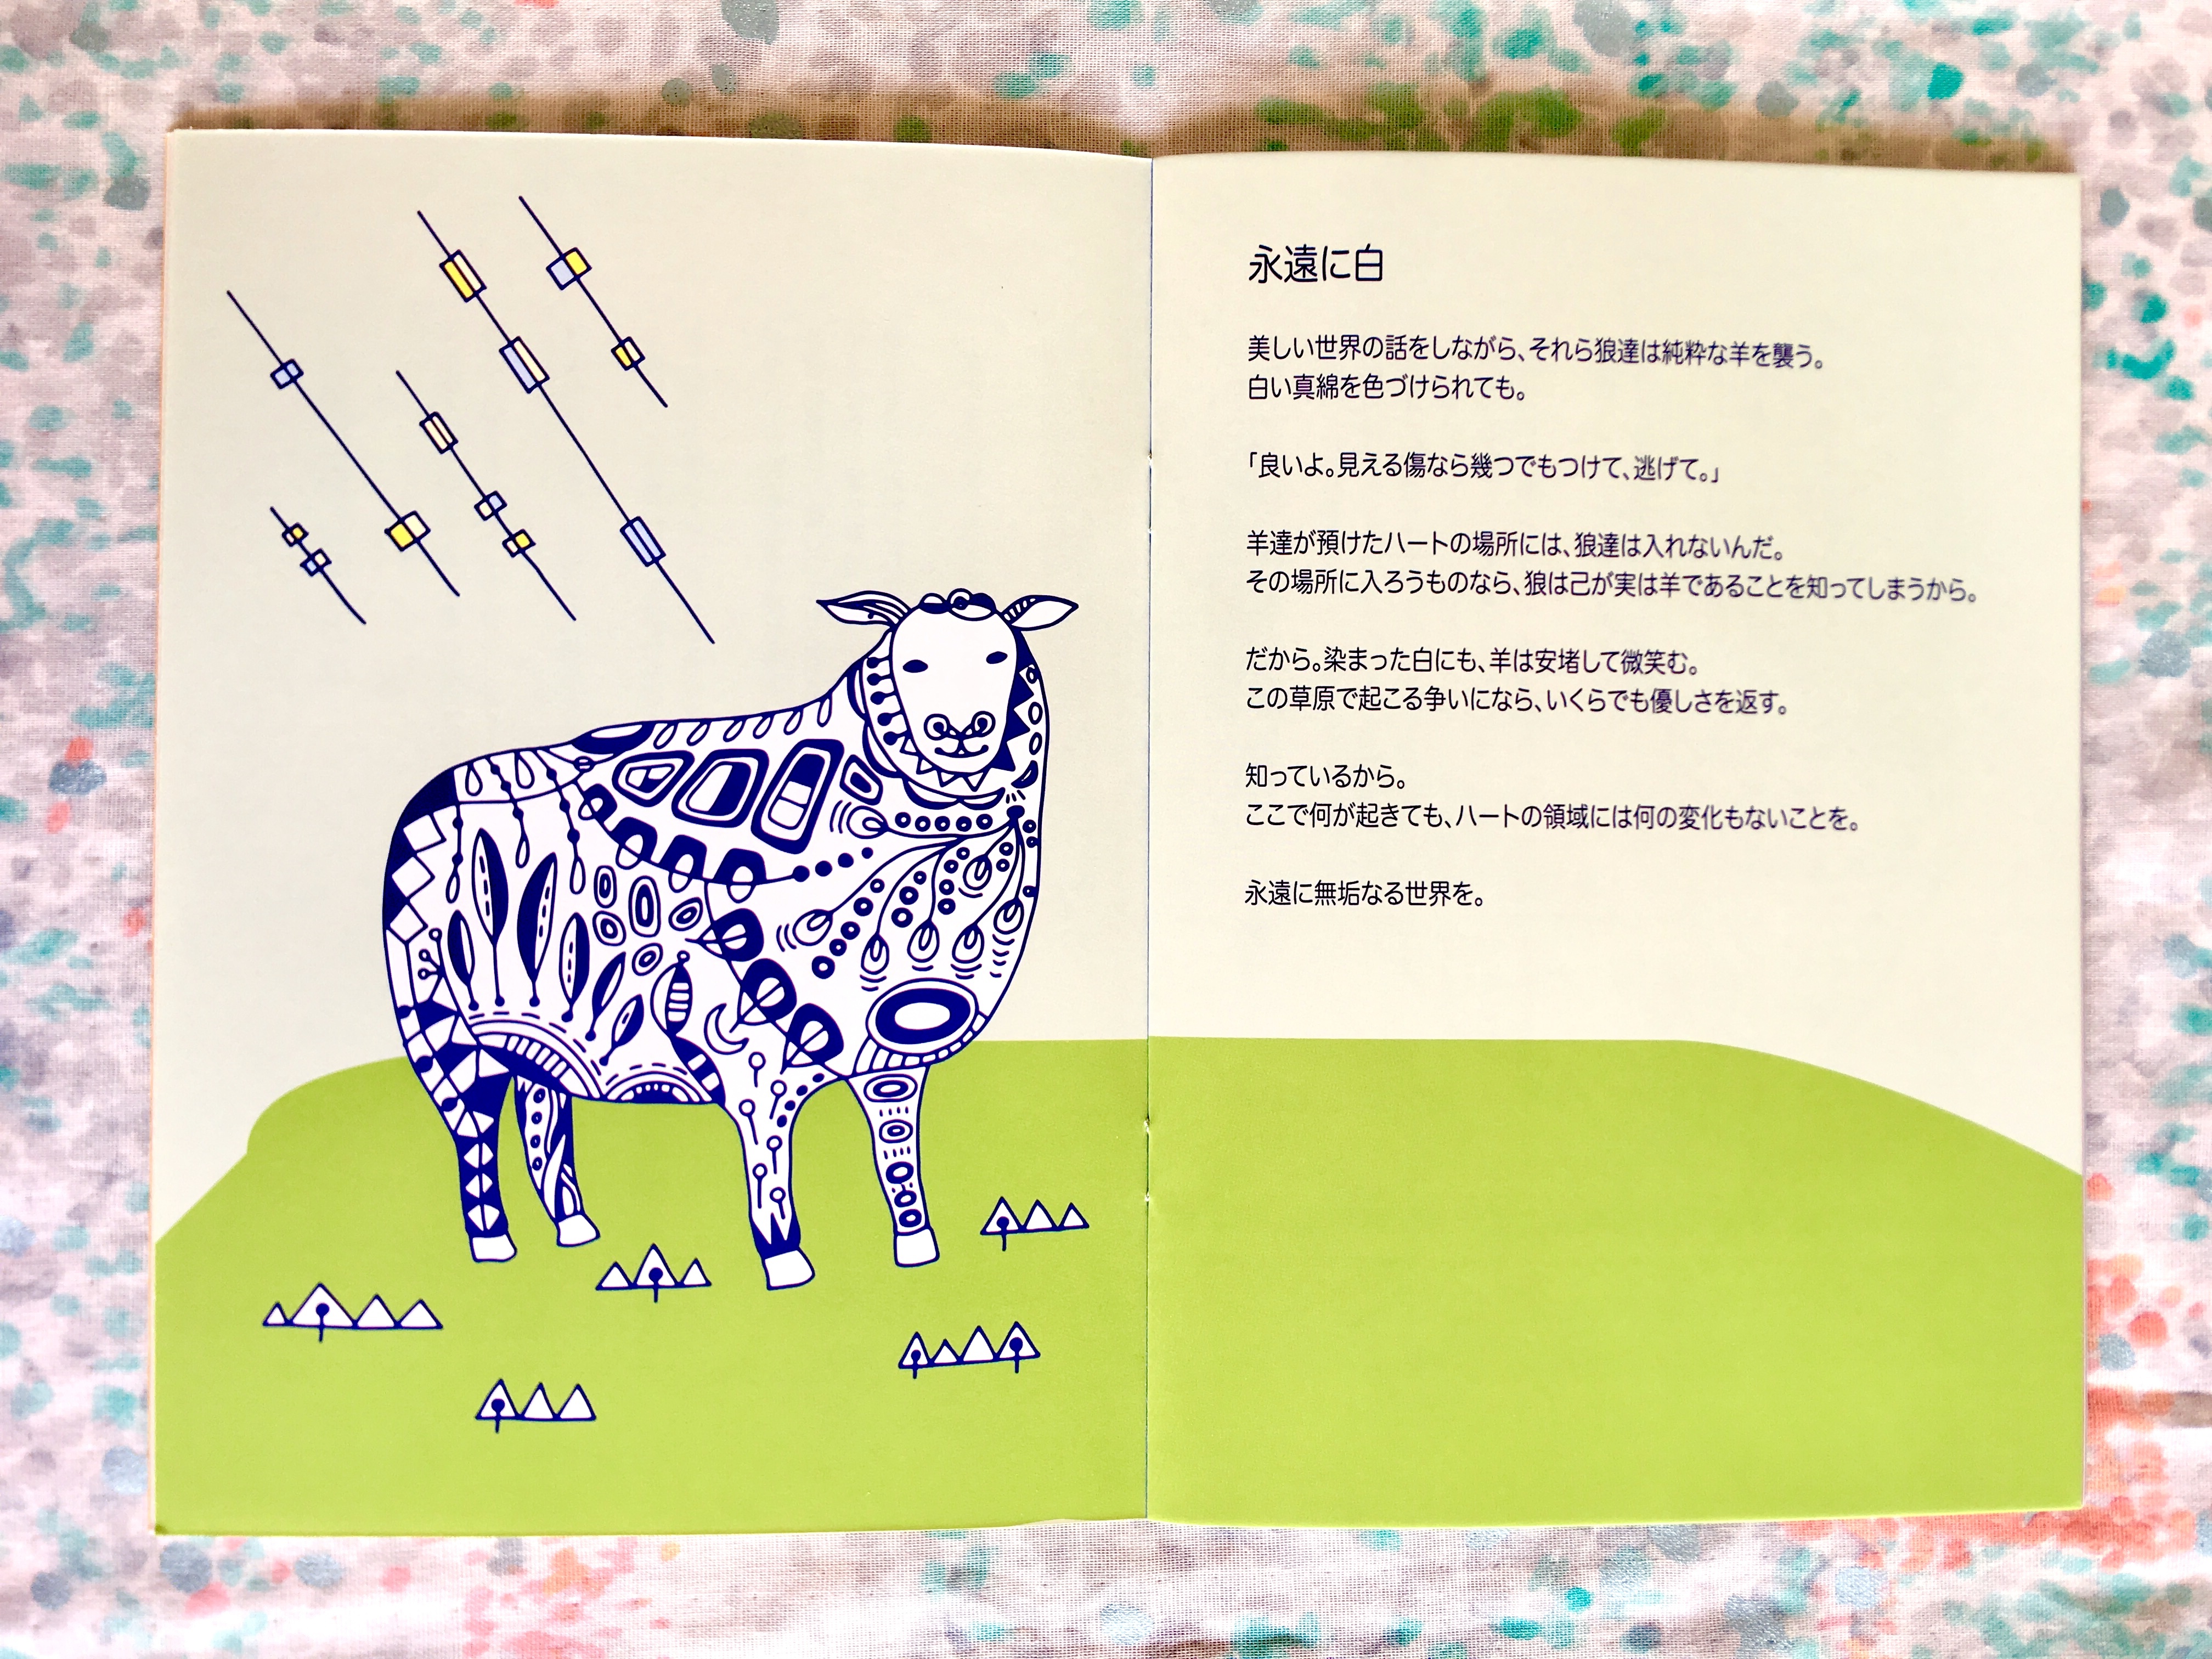 永遠に白
美しい世界の話をしながら、それら狼達は純粋な羊を襲う。
白い真綿を色づけられても。
「良いよ。見える傷なら幾つでもつけて、逃げて。」
羊達が預けたハートの場所には、狼達は入れないんだ。
その場所に入ろうものなら、狼は己が実は羊であることを知ってしまうから。
だから。染まった白にも、羊は安堵して微笑む。
この草原で起こる争いになら、いくらでも優しさを返す。
知っているから。
ここで何が起きても、ハートの領域には何の変化もないことを。
永遠に無垢なる世界を。